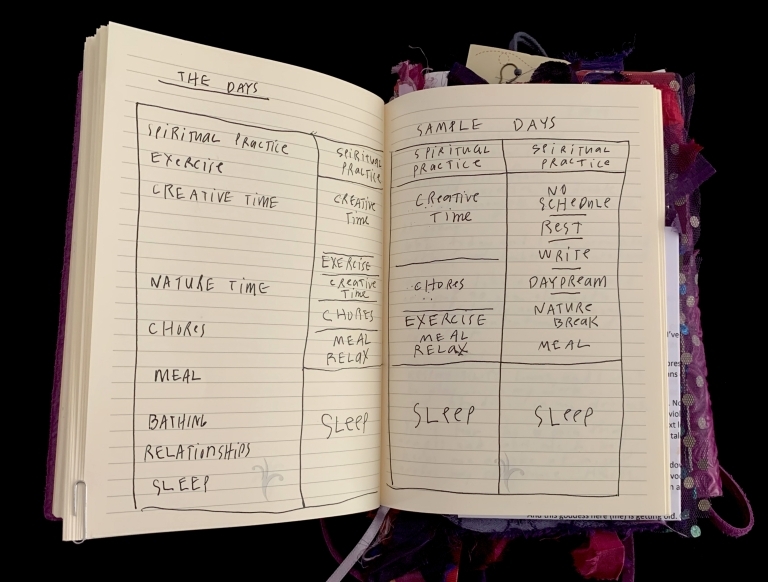 THE DAYS
SPIRITUAL PRACTICE
EXERCISE
CREATIVE TIME
NATURE TIME
CHORES
MEAL
BATHING
RELATIONSHIPS
SLEEP
SPIRITUAL
PRACTICE
CREATIVE
TIME
EXERCISE
CREATIVE
TIME
CHORES
MEAL
RELAX
SLEEP
SAMPLE DAYS
SPIRITUAL
PRACTICE
CREATIVE
TIME
CHORES
EXERCISE
MEAL
RELAX
SLEEP
SPIRITUAL
PRACTICE
NO
SCHEDULE
REST
WRITE
DAYDREAM
NATURE
BREAK
MEAL
SLEEP
And this goddess here (me) is getting old.